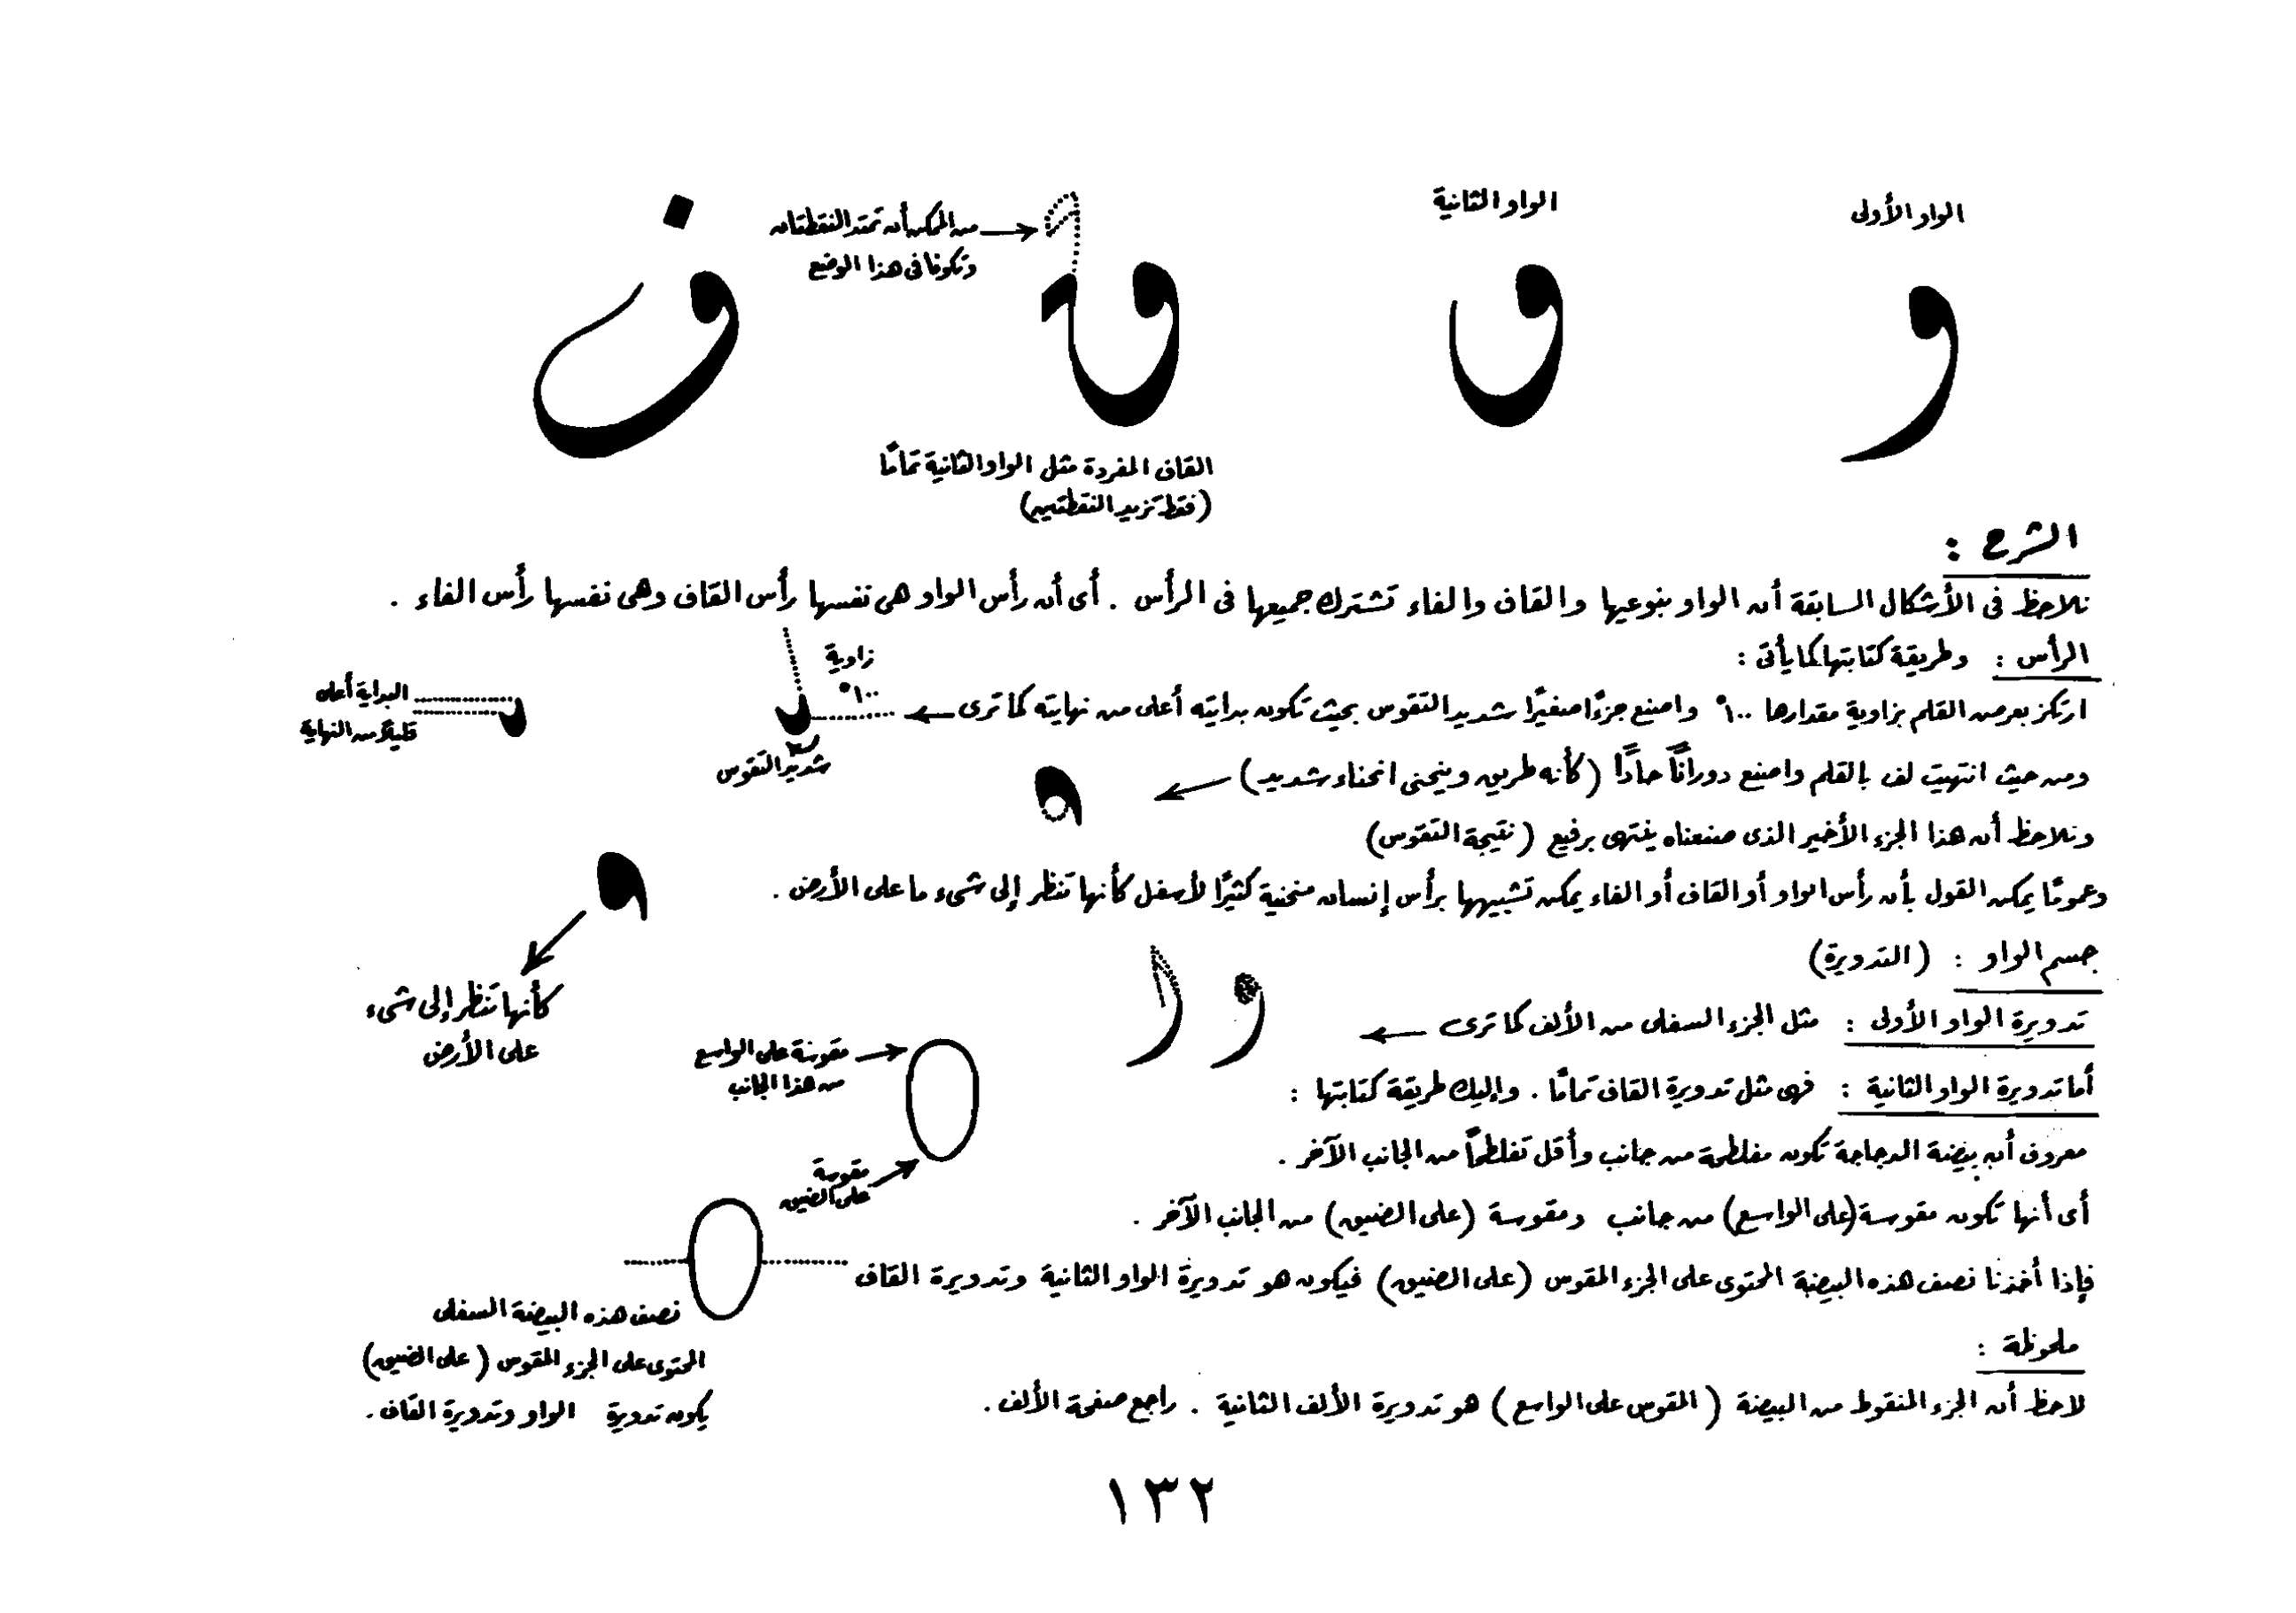 الواو الأولى
الواو الثانية
من الممكن أن تمتد النقطتان
وتكونا فى هذا الوضع
و
و
ق
ف
القاف المفردة مثل الواو الثانية تمامًا
(فقط تزيد النقطتين)
الشرح :
نلاحظ فى الأشكال السابقة أن الواو بنوعيها والقاف والفاء تشترك جميعها فى الرأس . أى أن رأس الواو هى نفسها رأس القاف وهى نفسها رأس الفاء .
الرأس : وطريقة كتابتها كما يأتى :
ارتكز بعرض القلم بزاوية مقدارها ١٠٠° واصنع جزءًا صغيرًا شديد التقوس بحيث تكون بدايته أعلى من نهايته كما ترى
زاوية
١٠٠°
شديد التقوس
البداية أعلى
قليلًا من النهاية
ومن حيث انتهيت لف بالقلم واصنع دورانًا حادًا (كأنه طريق وينحنى انحناء شديد)
ونلاحظ أن هذا الجزء الأخير الذى صنعناه ينتهى برفيع (نتيجة التقوس)
وعمومًا يمكن القول بأن رأس الواو أو القاف أو الفاء يمكن تشبيهها برأس إنسان منحنية كثيرًا لأسفل كأنها تنظر إلى شىء ما على الأرض .
كأنها تنظر إلى شىء
على الأرض
جسم الواو : (التدويرة)
تدويرة الواو الأولى : مثل الجزء السفلى من الألف كما ترى
أما تدويرة الواو الثانية : فهى مثل تدويرة القاف تمامًا . وإليك طريقة كتابتها :
مقوسة على الواسع
من هذا الجانب
معروف أن بيضة الدجاجة تكون مفلطحة من جانب وأقل تفلطحًا من الجانب الآخر .
مقوسة
على الضيق
أى أنها تكون مقوسة (على الواسع) من جانب ومقوسة (على الضيق) من الجانب الآخر .
فإذا أخذنا نصف هذه البيضة المحتوى على الجزء المقوس (على الضيق) فيكون هو تدويرة الواو الثانية وتدويرة القاف
نصف هذه البيضة السفلى
المحتوى على الجزء المقوس (على الضيق)
يكون تدويرة الواو وتدويرة القاف .
ملحوظة :
لاحظ أن الجزء المنقوط من البيضة (المقوس على الواسع) هو تدويرة الألف الثانية . راجع صفحة الألف .
١٣٢